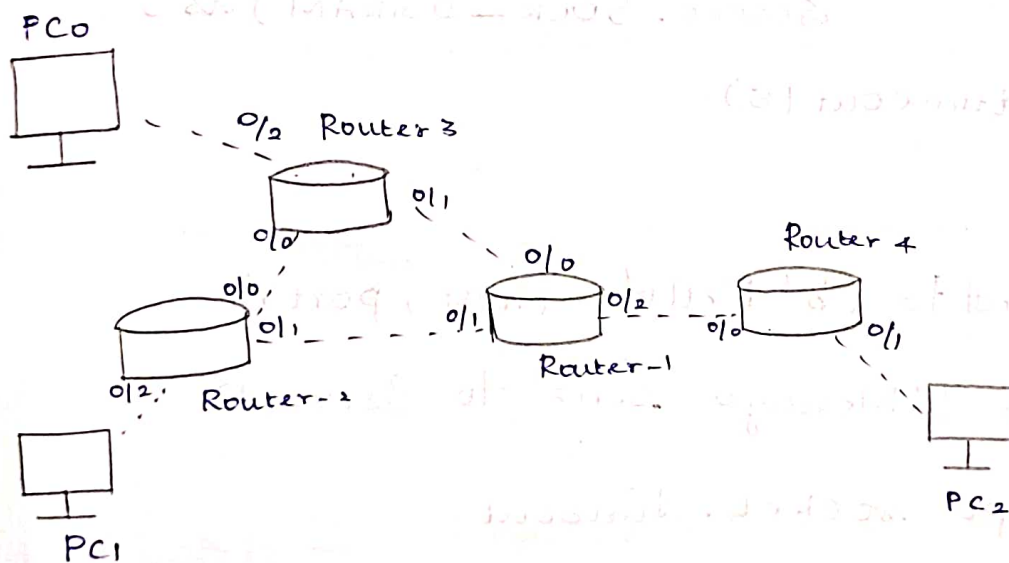 PC0
0/2 Router 3
0/1
0/0
Router 4
0/0
0/0
0/1
0/1
0/2
0/0
0/1
Router-1
0/2
Router-2
PC2
PC1